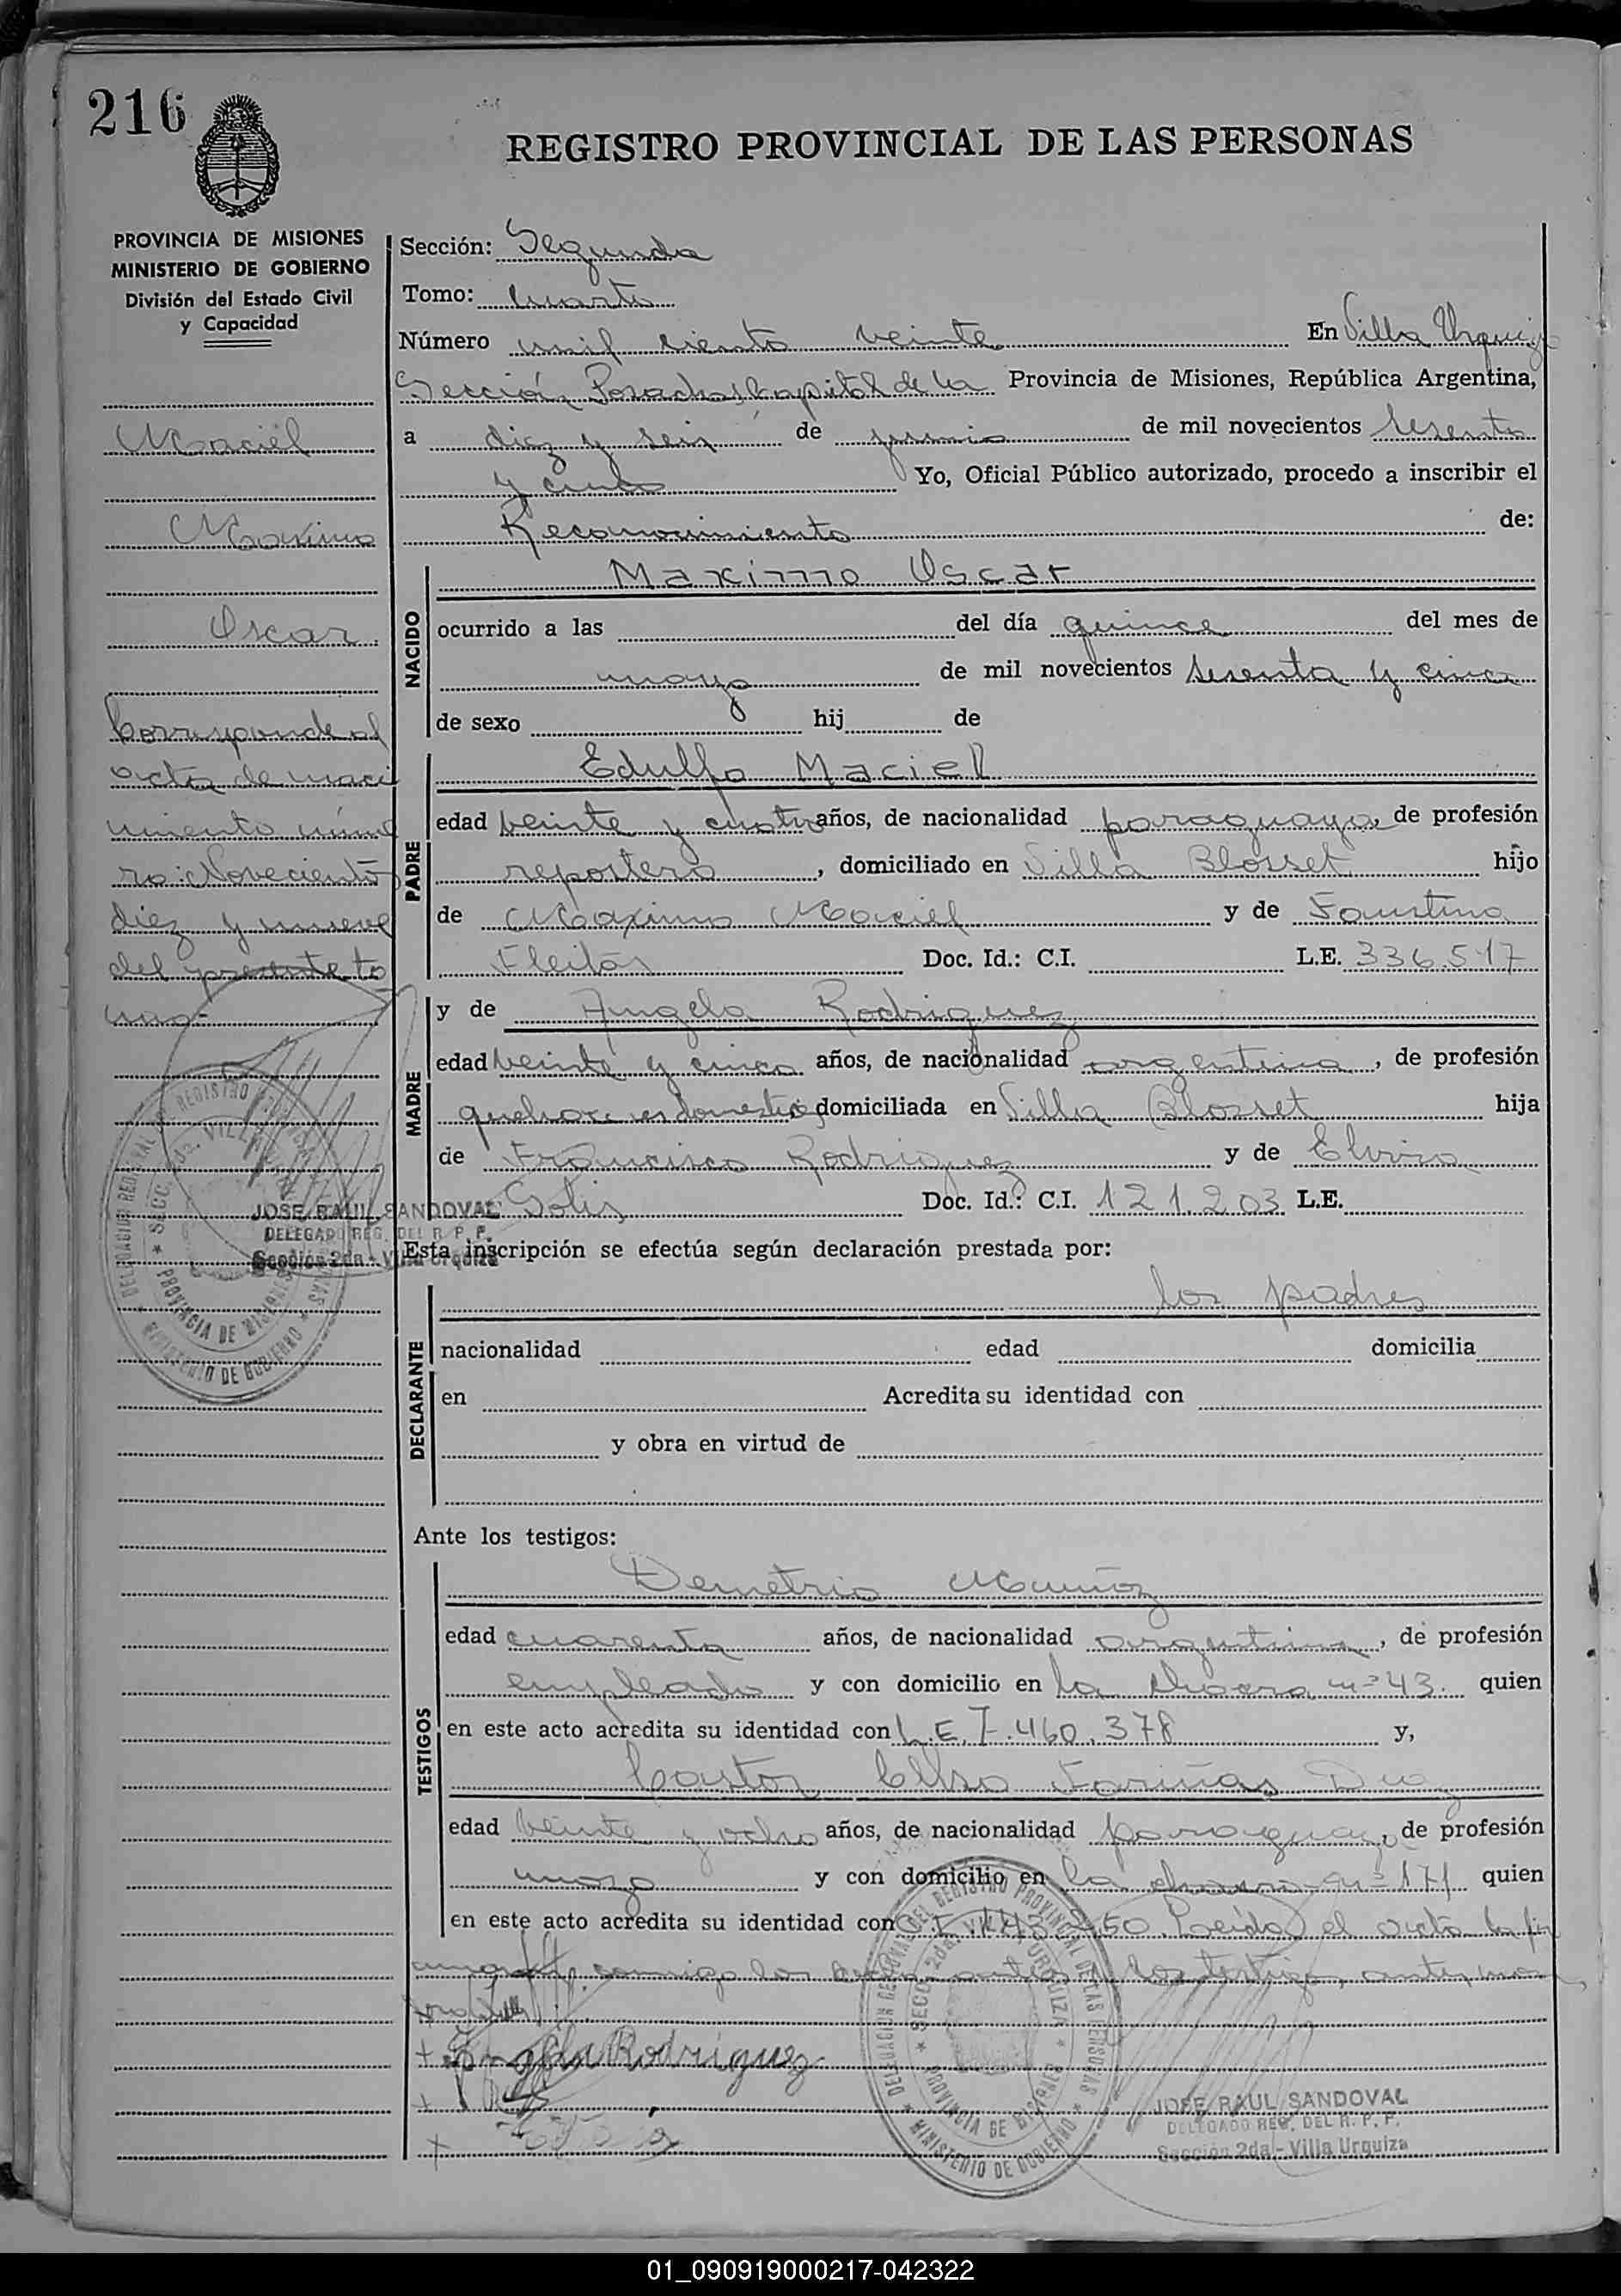 216
REGISTRO PROVINCIAL DE LAS PERSONAS
PROVINCIA DE MISIONES
MINISTERIO DE GOBIERNO
División del Estado Civil
y Capacidad
Maciel
Maximo
Oscar
Corresponde al
acta de naci
miento núme
ro: Novecientos
diez y nueve
del presente to
mo-
JOSE RAUL SANDOVAL
DELEGADO REG. DEL R. P. P.
Sección 2da - Villa Urquiza
Sección: Segunda
Tomo: Cuarto
Número mil ciento veinte En Villa Urquiza
Sección Posadas, Capital de la Provincia de Misiones, República Argentina,
a diez y seis de junio de mil novecientos sesenta
y cinco Yo, Oficial Público autorizado, procedo a inscribir el
Reconocimiento de:
NACIDO
Maximo Oscar
ocurrido a las del día quince del mes de
mayo de mil novecientos sesenta y cinco
de sexo hij de
PADRE
Edulfo Maciel
edad veinte y cuatro años, de nacionalidad paraguaya, de profesión
repostero, domiciliado en Villa Blosset hijo
de Maximo Maciel y de Faustina
Fleitas Doc. Id.: C.I. L.E. 336.517
MADRE
y de Angela Rodriguez
edad veinte y cinco años, de nacionalidad argentina, de profesión
quehaceres domesticos domiciliada en Villa Blosset hija
de Francisco Rodriguez y de Elvira
Solis Doc. Id.: C.I. 121.203 L.E.
Esta inscripción se efectúa según declaración prestada por:
DECLARANTE
los padres
nacionalidad edad domicilia
en Acredita su identidad con
y obra en virtud de
Ante los testigos:
TESTIGOS
Demetrio Muñoz
edad cuarenta años, de nacionalidad argentina, de profesión
empleado y con domicilio en la chacra nº 43. quien
en este acto acredita su identidad con L.E. 7.460.378 y,
Castor Celso Fariñas
edad veinte y ocho años, de nacionalidad paraguaya, de profesión
mozo y con domicilio en la chacra nº 171 quien
en este acto acredita su identidad con Leida el acta la fir
conmigo los testigos, ante mi
Angela Rodríguez
DELEGACION REGIONAL DEL REGISTRO PROVINCIAL DE LAS PERSONAS
SECC. 2da. VILLA URQUIZA
PROVINCIA DE MISIONES
MINISTERIO DE GOBIERNO
JOSE RAUL SANDOVAL
DELEGADO REG. DEL R. P. P.
Sección 2da - Villa Urquiza
01_090919000217-042322